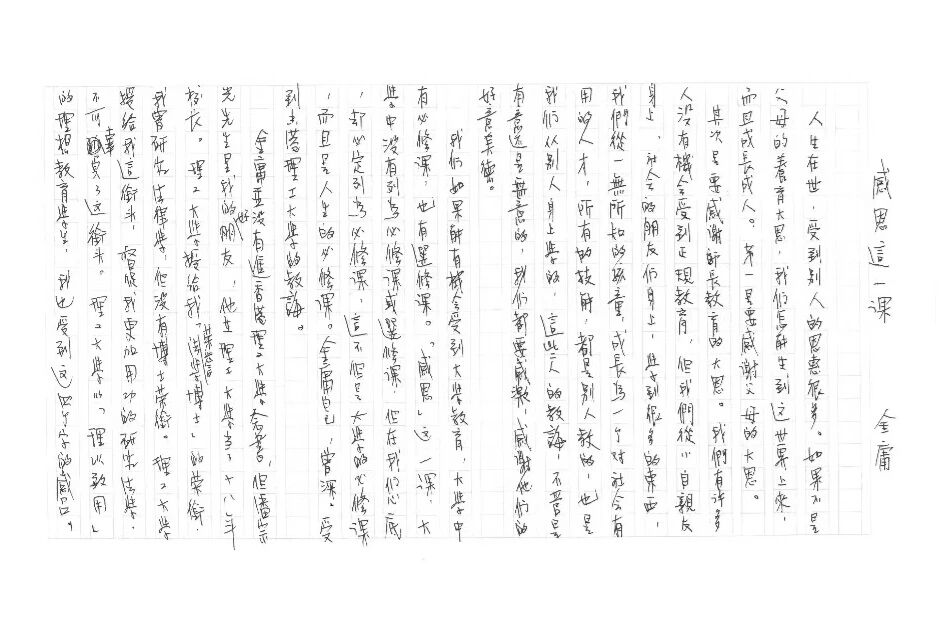 感恩這一课
金庸
人生在世，受到别人的恩惠很多。如果不是
父母的養育大恩，我们怎能生到这世界上來，
而且成長成人。第一是要感谢父母的大恩。
其次是要感谢師長教育的大恩。我們有许多
人没有機会受到正規教育，但我們從小自親友
身上、社会的朋友们身上，学到很多的東西，
我們從一無所知的孩童，成長為一个对社会有
用的人才，所有的技能，都是别人教的，也是
我们从别人身上学的，這些人的教誨，不管是
有意还是無意的，我们都要感激，感谢他们的
好意美德。
我们如果能有機会受到大学教育，大学中
有必修课，也有選修课。「感恩」这一课，大
学中没有列為必修课或選修课，但在我们心底
，却必定列為必修课，這不但是大学的必修课
，而且是人生的必修课。金庸自己，曾深受
到香港理工大学的教誨。
金庸並没有進香港理工大学念書，但潘宗
光先生是我的好朋友，他在理工大学当了十八年
校長。理工大学授给我「荣誉法学博士」的荣銜，
我曾研究法律学，但没有博士荣銜。理工大学
授给我這銜头，督促我更加用功的研究法学，
不可辜負了这銜头。理工大学的「理以致用」
的理想教育学生，我也受到这四个字的感召。